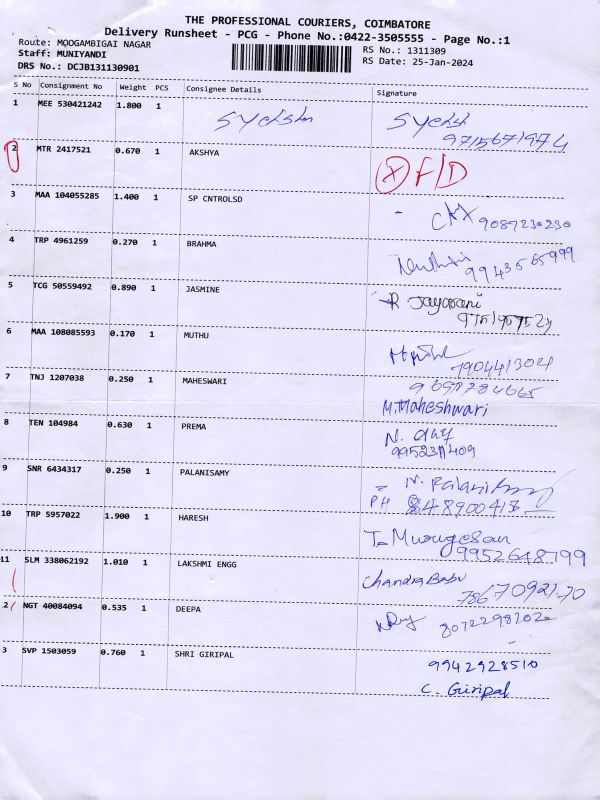 THE PROFESSIONAL COURIERS, COIMBATORE
Delivery Runsheet - PCG - Phone No.:0422-3505555 - Page No.:1
Route: MOOGAMBIGAI NAGAR
RS No.: 1311309
Staff: MUNIYANDI
RS Date: 25-Jan-2024
DRS No.: DCJB131130901
S No Consignment No Weight PCS Consignee Details Signature
1 MEE 530421242 1.800 1
9715671974
2 MTR 2417521 0.670 1 AKSHYA
X F/D
3 MAA 104055285 1.400 1 SP CNTROLSD
9087230230
4 TRP 4961259 0.270 1 BRAHMA
9943565999
5 TCG 50559492 0.890 1 JASMINE
R Jayarani
6 MAA 108085593 0.170 1 MUTHU
7904413021
7 TNJ 1207038 0.250 1 MAHESWARI
M.Maheshwari
8 TEN 104984 0.630 1 PREMA
9 SNR 6434317 0.250 1 PALANISAMY
PH
10 TRP 5957022 1.900 1 HARESH
T. Murugesan
9952648799
11 SLM 338062192 1.010 1 LAKSHMI ENGG
Chandra Babu
7867092170
2 NGT 40084094 0.535 1 DEEPA
3 SVP 1503059 0.760 1 SHRI GIRIPAL
9942928510
C. Giripal